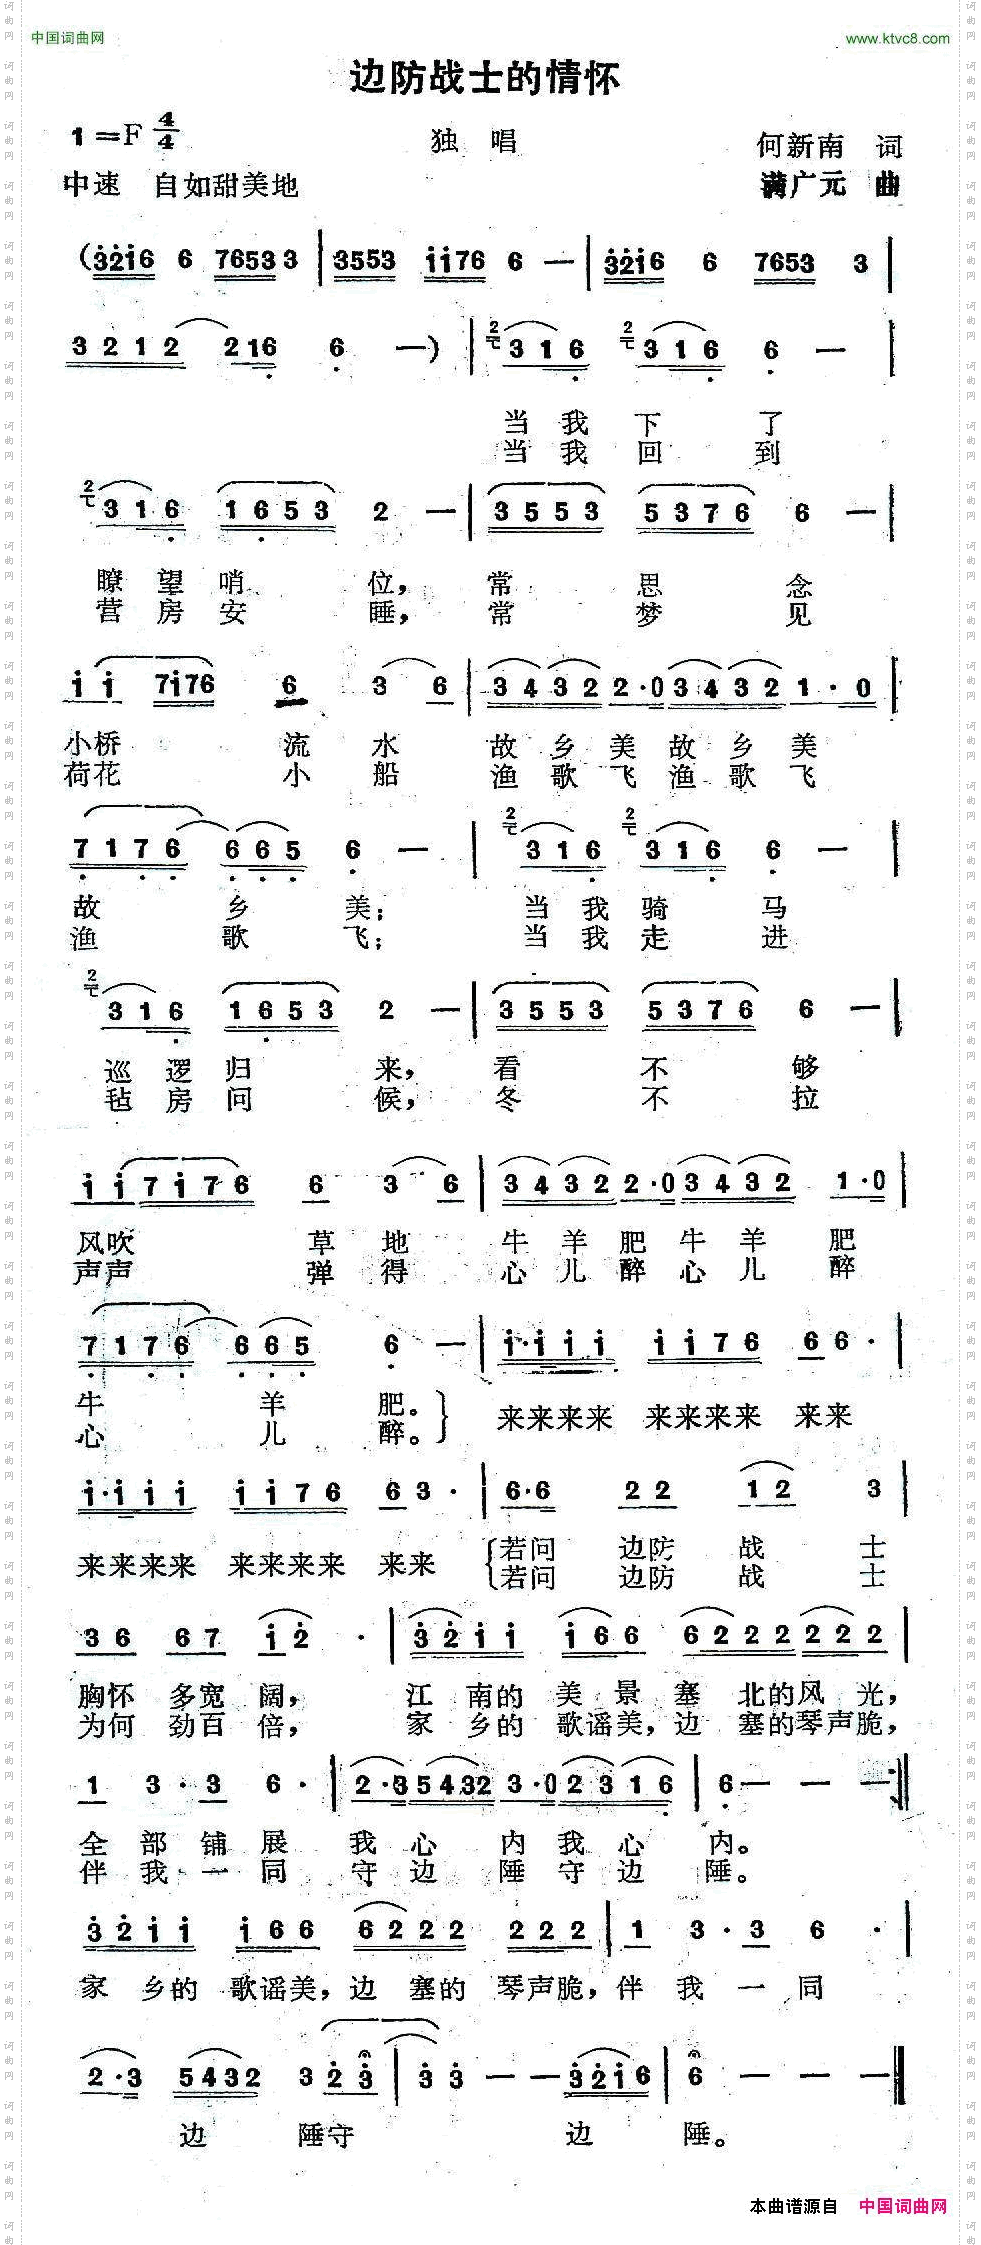 中国词曲网 www.ktvc8.com
边防战士的情怀
1=F 4/4 独 唱 何新南 词
中速 自如甜美地 满广元 曲
(3216 6 7653 3 | 3553 1176 6 — | 3216 6 7653 3 |
3 2 1 2 2 16 6 —) | 2 3 1 6 2 3 1 6 6 — |
当 我 下 了
当 我 回 到
2 3 1 6 1 6 5 3 2 — | 3 5 5 3 5 3 7 6 6 — |
瞭 望 哨 位, 常 思 念
营 房 安 睡, 常 梦 见
1 1 7176 6 3 6 | 3 4 3 2 2·0 3 4 3 2 1·0 |
小桥 流 水 故 乡 美 故 乡 美
荷花 小 船 渔 歌 飞 渔 歌 飞
7 1 7 6 6 6 5 6 — | 2 3 1 6 2 3 1 6 6 — |
故 乡 美; 当 我 骑 马
渔 歌 飞; 当 我 走 进
2 3 1 6 1 6 5 3 2 — | 3 5 5 3 5 3 7 6 6 — |
巡 逻 归 来, 看 不 够
毡 房 问 候, 冬 不 拉
1 1 7 1 7 6 6 3 6 | 3 4 3 2 2·0 3 4 3 2 1·0 |
风吹 草 地 牛 羊 肥 牛 羊 肥
声声 弹 得 心 儿 醉 心 儿 醉
7 1 7 6 6 6 5 6 — | 1·1 1 1 1 1 7 6 6 6· |
牛 羊 肥。
心 儿 醉。
来来来来 来来来来 来来
1·1 1 1 1 1 7 6 6 3· | 6·6 2 2 1 2 3 |
来来来来 来来来来 来来
若问 边防 战 士
若问 边防 战 士
3 6 6 7 1 2 · | 3 2 1 1 1 6 6 6 2 2 2 2 2 2 |
胸怀 多宽 阔, 江 南的 美 景 塞 北的风 光,
为何 劲百 倍, 家 乡的 歌谣美,边 塞的琴声脆,
1 3· 3 6· | 2·3 5 4 3 2 3·0 2 3 1 6 | 6 — — — :‖
全 部 铺 展 我 心 内 我 心 内。
伴 我 一 同 守 边 陲 守 边 陲。
3 2 1 1 1 6 6 6 2 2 2 2 2 2 | 1 3· 3 6 · |
家 乡的 歌谣美,边 塞的 琴声脆,伴 我 一 同
2·3 5 4 3 2 3 2 3 | 3 3 — — 3 2 1 6 | 6 — — — ‖
边 陲守 边 陲。
本曲谱源自 中国词曲网